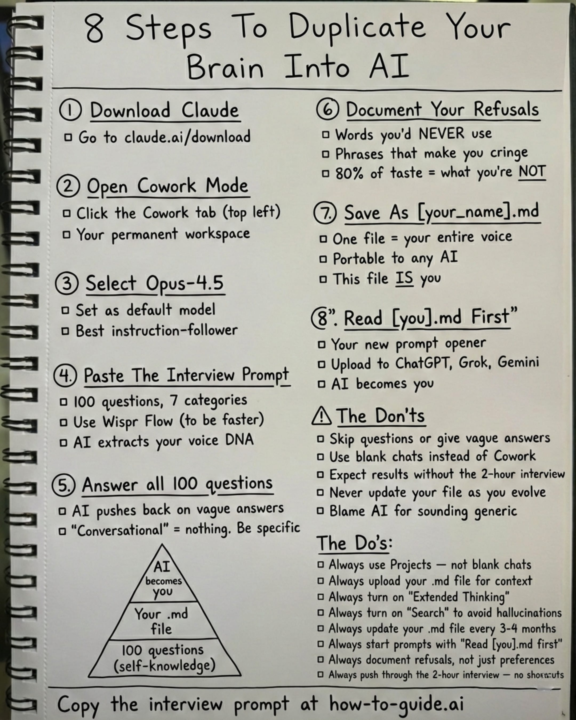 8 Steps To Duplicate Your
Brain Into AI
① Download Claude
□ Go to claude.ai/download
② Open Cowork Mode
□ Click the Cowork tab (top left)
□ Your permanent workspace
③ Select Opus-4.5
□ Set as default model
□ Best instruction-follower
④. Paste The Interview Prompt
□ 100 questions, 7 categories
□ Use Wispr Flow (to be faster)
□ AI extracts your voice DNA
⑤. Answer all 100 questions
□ AI pushes back on vague answers
□ "Conversational" = nothing. Be specific
AI
becomes
you
Your .md
file
100 questions
(self-knowledge)
⑥ Document Your Refusals
□ Words you'd NEVER use
□ Phrases that make you cringe
□ 80% of taste = what you're NOT
⑦. Save As [your_name].md
□ One file = your entire voice
□ Portable to any AI
□ This file IS you
⑧". Read [you].md First"
□ Your new prompt opener
□ Upload to ChatGPT, Grok, Gemini
□ AI becomes you
⚠ The Don'ts
□ Skip questions or give vague answers
□ Use blank chats instead of Cowork
□ Expect results without the 2-hour interview
□ Never update your file as you evolve
□ Blame AI for sounding generic
The Do's:
□ Always use Projects — not blank chats
□ Always upload your .md file for context
□ Always turn on "Extended Thinking"
□ Always turn on "Search" to avoid hallucinations
□ Always update your .md file every 3-4 months
□ Always start prompts with "Read [you].md first"
□ Always document refusals, not just preferences
□ Always push through the 2-hour interview — no
Copy the interview prompt at how-to-guide.ai